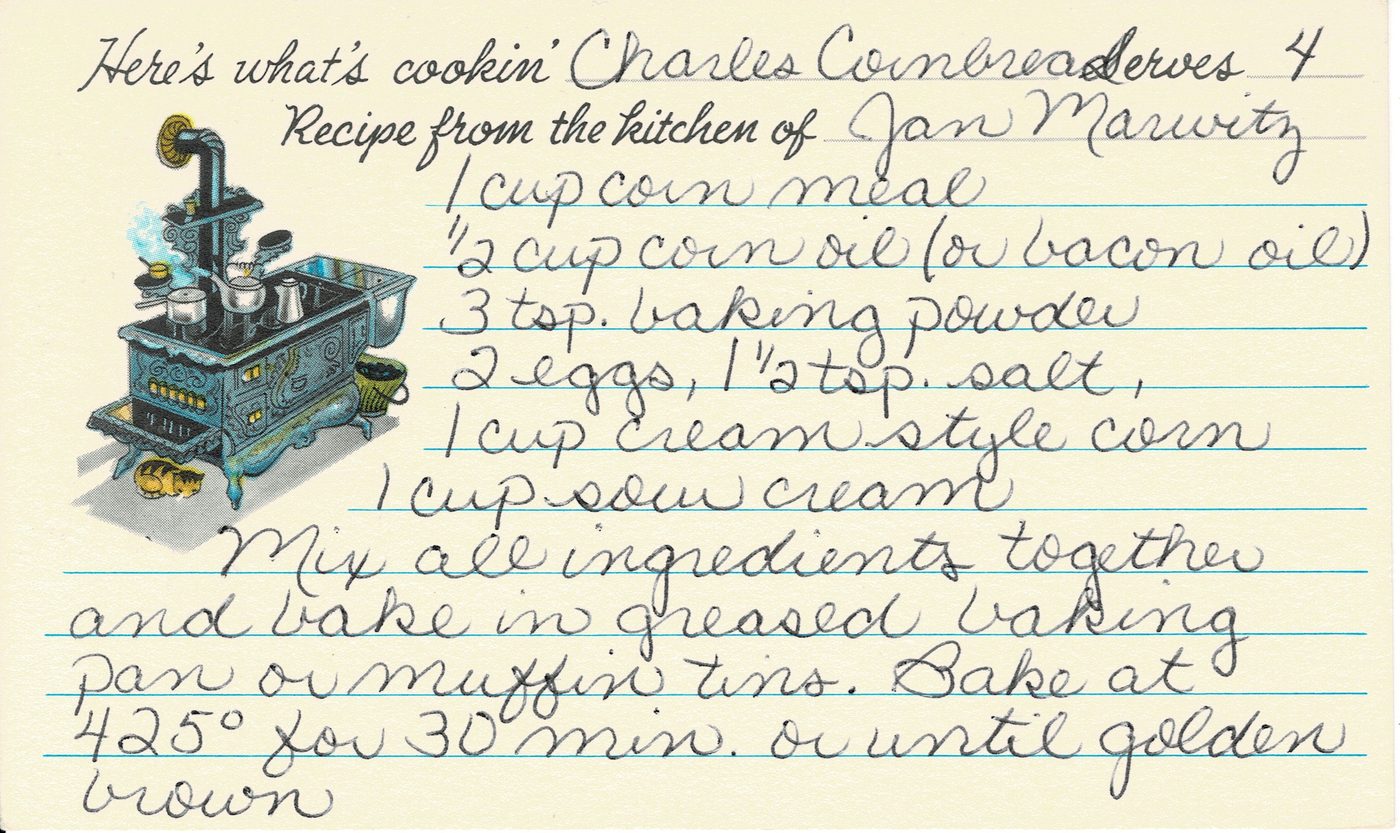 Here's what's cookin' Charles Cornbread Serves 4
Recipe from the kitchen of Jan Marwitz
1 cup corn meal
1/2 cup corn oil (or bacon oil)
3 tsp. baking powder
2 eggs, 1 1/2 tsp. salt,
1 cup cream style corn
1 cup sour cream
Mix all ingredients together
and bake in greased baking
pan or muffin tins. Bake at
425° for 30 min. or until golden
brown